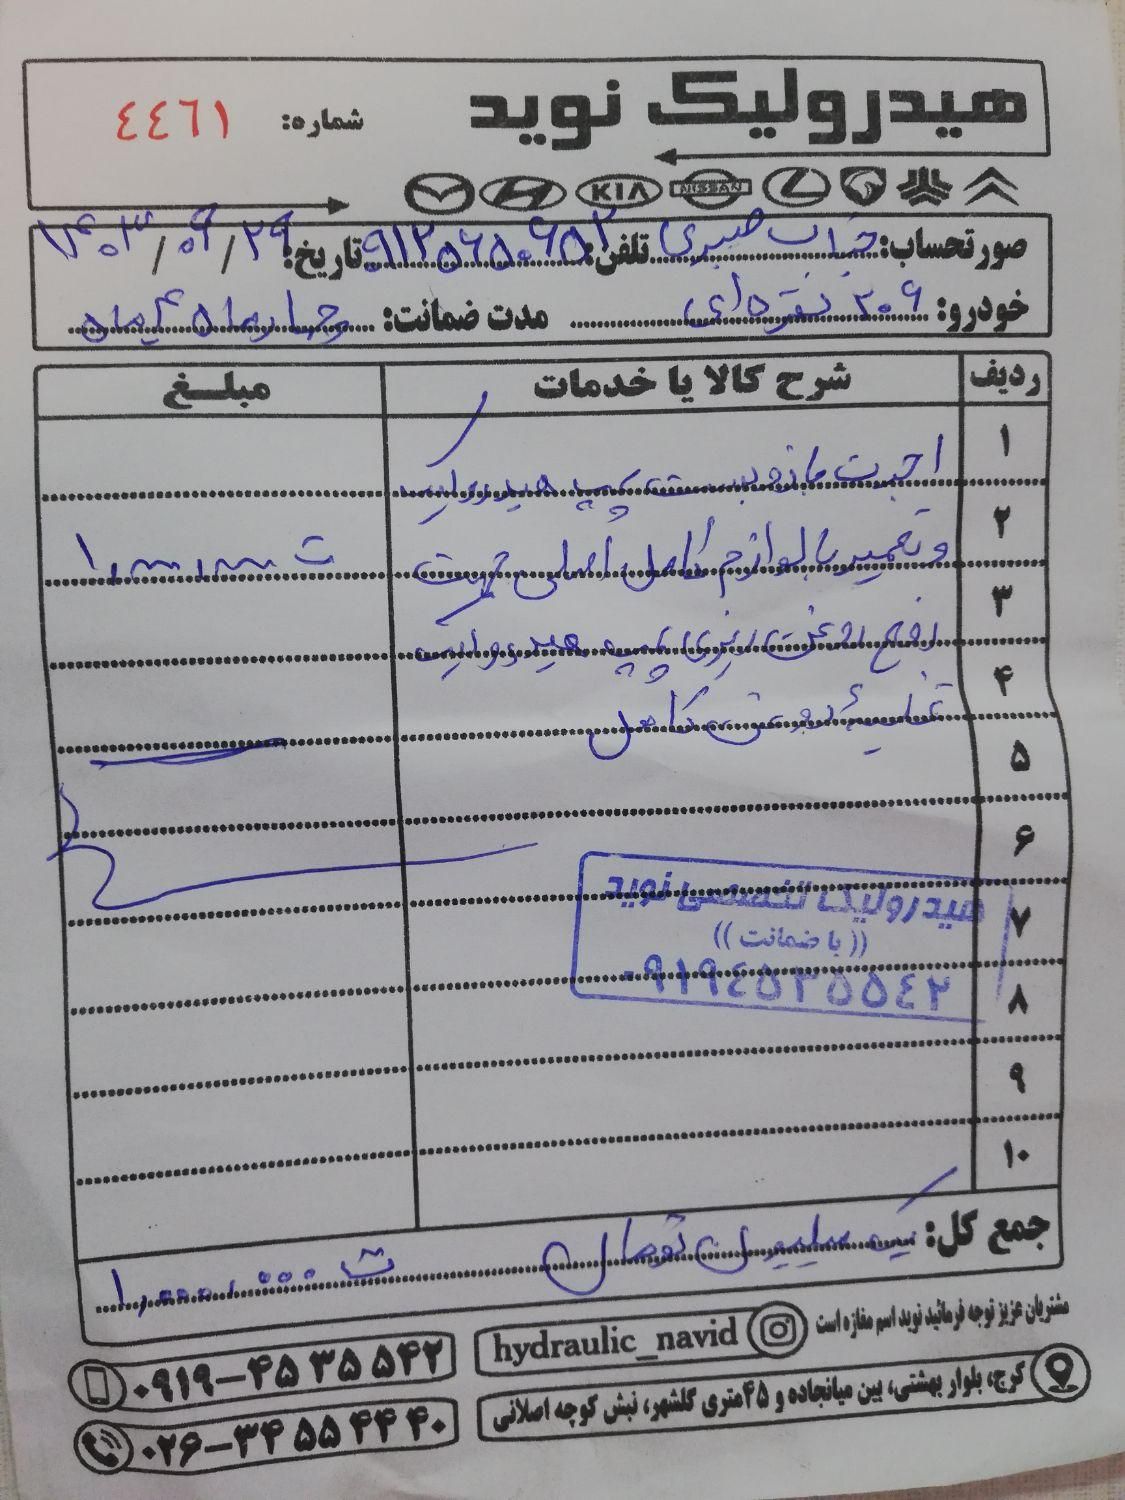 هیدرولیک نوید
شماره: ٤٤٦١
KIA NISSAN
صورتحساب: جناب صبری تلفن: ۰۹۱۲۵۶۵۰۶۵۲ تاریخ: ۱۴۰۳/۰۹/۲۹
خودرو: ۲۰۶ نقره‌ای مدت ضمانت: چهارماه ۴ماه
ردیف شرح کالا یا خدمات مبلغ
۱ اجرت بازوبست پمپ هیدرولیک
۲ و تعمیر با لوازم کامل اصلی جهت ۱,۰۰۰,۰۰۰ ت
۳ رفع روغن ریزی پمپ هیدرولیک
۴ تخلیهٔ روغن کامل
۵
۶
۷
۸
۹
۱۰
هیدرولیک تخصصی نوید
(( با ضمانت ))
۰۹۱۹٤۵۳۵۵٤۲
جمع کل: یک میلیون تومان ۱,۰۰۰,۰۰۰ ت
مشتریان عزیز توجه فرمائید نوید اسم مغازه است
hydraulic_navid
۰۹۱۹-۴۵۳۵۵۴۲
کرج، بلوار بهشتی، بین میانجاده و ۴۵متری گلشهر، نبش کوچه اصلانی
۰۲۶-۳۴۵۵۴۴۴۰